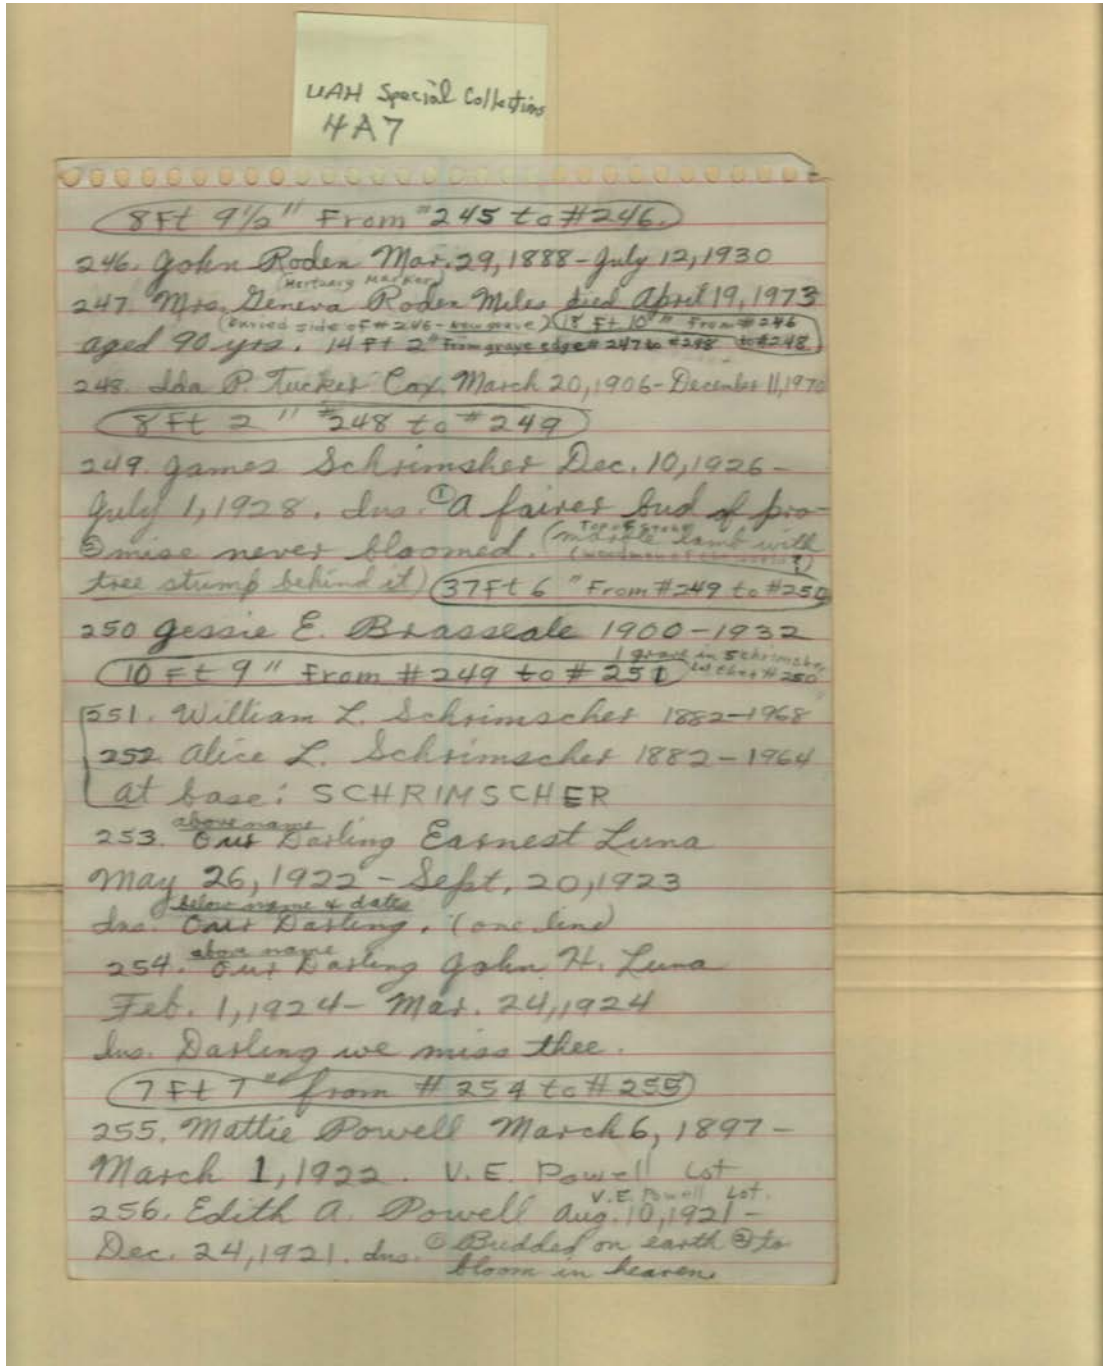 UAH Special Collections
4A7
8Ft 9 1/2" From #245 to #246.
246. John Roden Mar. 29, 1888 - July 12, 1930
(Mortuary Marker)
247. Mrs. Geneva Roden Miles died April 19, 1973
(buried side of #246 - new grave) 18 Ft 10" From #246
aged 90 yrs. 14 Ft 2" From grave edge #247 to #248 to #248
248. Ida P. Tucker Cox March 20, 1906 - December 11, 1970
8Ft 2" #248 to #249
249. James Schrimsher Dec. 10, 1926 -
July 1, 1928. Ins. ① A fairer bud of pro-
Top of stone
② mise never bloomed. (marble lamb with
tree stump behind it) 37Ft 6" From #249 to #250
250 Jessie E. Brasseale 1900-1932
1 grave in Schrimsher
10 Ft 9" From #249 to #251 lot then #250
251. William L. Schrimscher 1882-1968
252. Alice L. Schrimscher 1882-1964
at base: SCHRIMSCHER
above name
253. Our Darling Earnest Luna
May 26, 1922 - Sept. 20, 1923
below name & dates
Ins. Our Darling. (one line)
above name
254. Our Darling John H. Luna
Feb. 1, 1924 - Mar. 24, 1924
Ins. Darling we miss thee.
7 Ft 7" from #254 to #255
255. Mattie Powell March 6, 1897 -
March 1, 1922. V.E. Powell Lot
V.E. Powell Lot.
256. Edith A. Powell Aug. 10, 1921 -
Dec. 24, 1921. Ins. ① Budded on earth ② to
bloom in heaven.